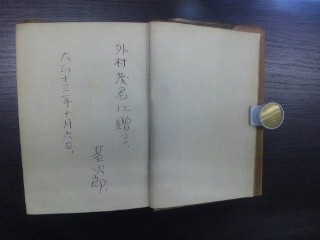 外村茂君に贈る、
基次郎、
大正十三年十月六日、